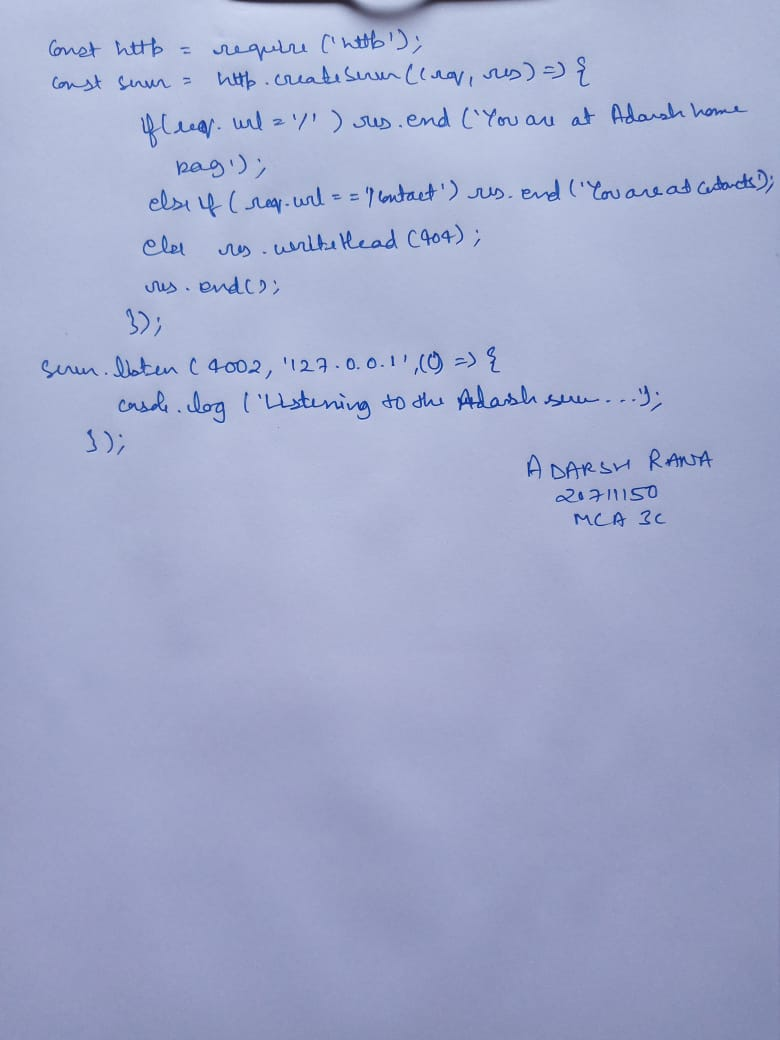 const http = require ('http');
const server = http.createServer((req, res) => {
if(req.url = '/') res.end ('You are at Adarsh home
page');
else if (req.url = = '/contact') res.end ('You are at contacts');
else res.writeHead (404);
res.end();
});
server.listen (4002, '127.0.0.1', () => {
console.log ('Listening to the Adarsh server ...');
});
ADARSH RANA
20711150
MCA 3C